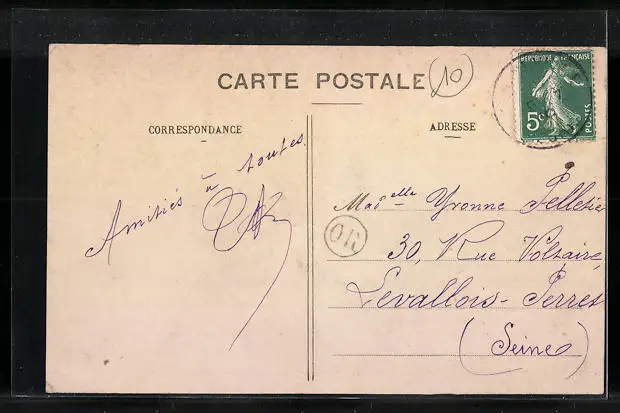 CARTE POSTALE
10
RÉPUBLIQUE FRANÇAISE
5c
POSTES
CORRESPONDANCE
ADRESSE
Amitiés à toutes
Madelle Yvonne Pelletier
OR
30, Rue Voltaire,
Levallois-Perret
(Seine)